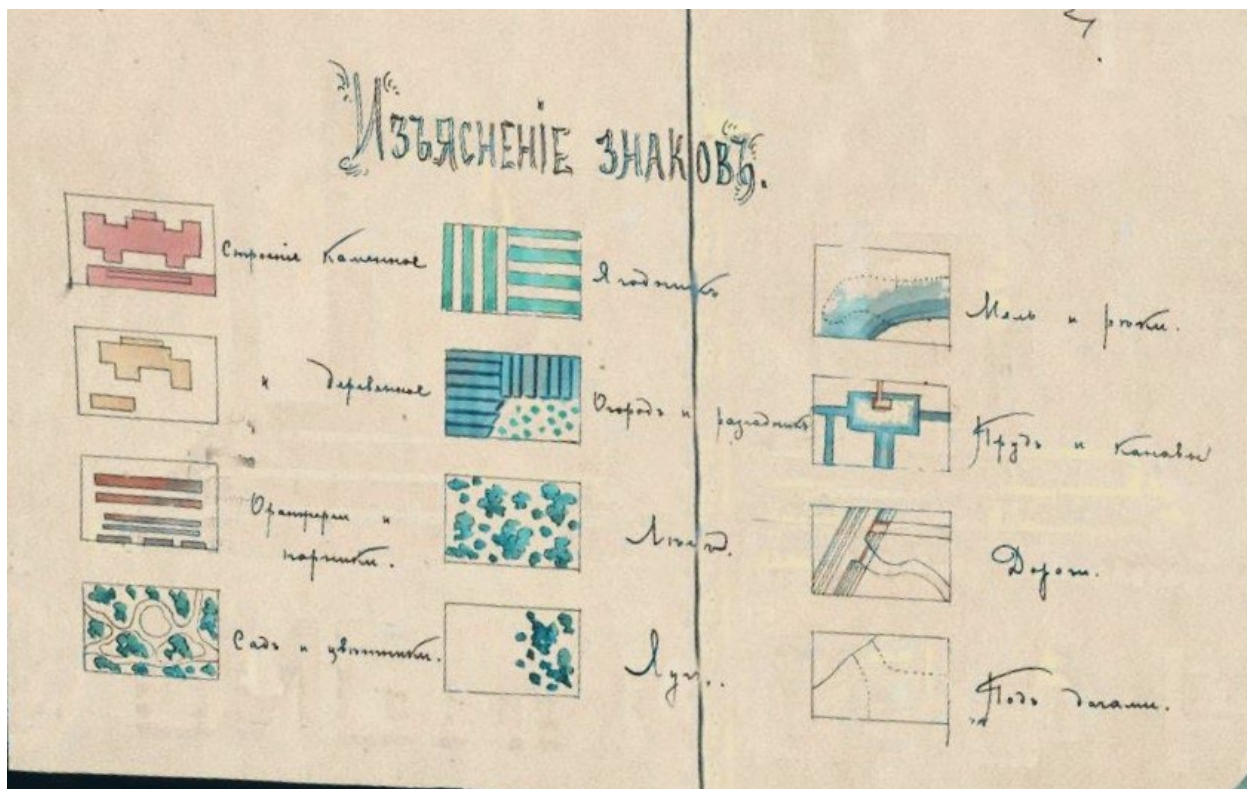 Изъясненіе знаковъ.
Строеніе Каменное
и деревенное
Оранжереи и
парники.
Садъ и цвѣтники.
Ягодникъ
Огородъ и разсадникъ
Лѣсъ.
Лугъ.
Мель и рѣки.
Прудъ и Канавы
Дороги.
Подъ дачами.